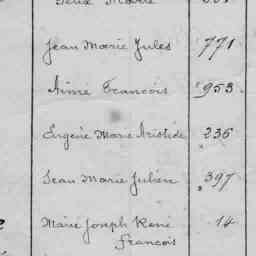 Marie
Jean Marie Jules 771
Aimé François 953
Eugène Marie Aristide 236
Jean Marie Julien 397
Marie Joseph René 14
François